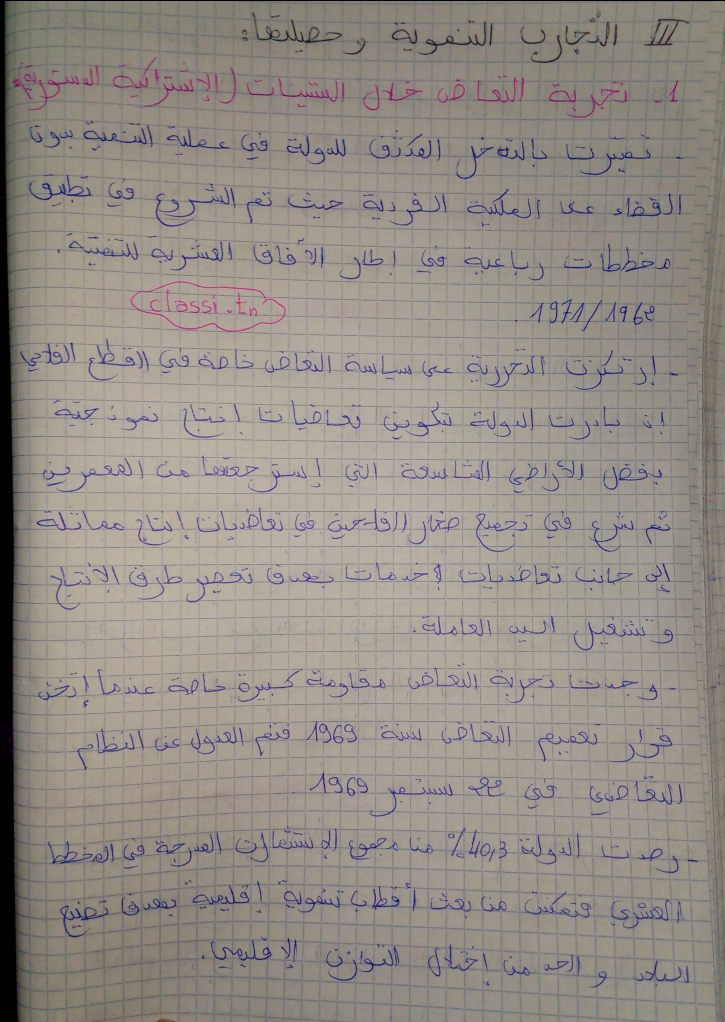 III التجارب التنموية وحصيلتها:
1. تجربة التعاضد خلال الستينات (الإشتراكية الدستورية)
. تميزت بالتدخل المكثف للدولة في عملية التنمية بدون
القضاء على الملكية الفردية حيث تم الشروع في تطبيق
مخططات رباعية في إطار الآفاق العشرية للتنمية.
1971/1962.
classi.tn
- إرتكزت التجربة على سياسة التعاضد خاصة في القطاع الفلاحي
إذ بادرت الدولة بتكوين تعاضديات إنتاج نموذجية
بفضل الأراضي الشاسعة التي إسترجعتها من المعمرين
ثم شرع في تجميع صغار الفلاحين في تعاضديات إنتاج مماثلة
إلى جانب تعاضديات خدمات بهدف تعصير طرق الإنتاج
وتشغيل اليد العاملة.
- وجدت تجربة التعاضد مقاومة كبيرة خاصة عندما إتخذ
قرار تعميم التعاضد سنة 1969 فتم العدول عن النظام
التعاضدي في 22 سبتمبر 1969
- رصدت الدولة 40,3% من مجموع الإستثمارات المدرجة في المخطط
العشري فتمكنت من بعث أقطاب تنموية إقليمية بهدف تصنيع
البلاد والحد من إختلال التوازن الإقليمي.